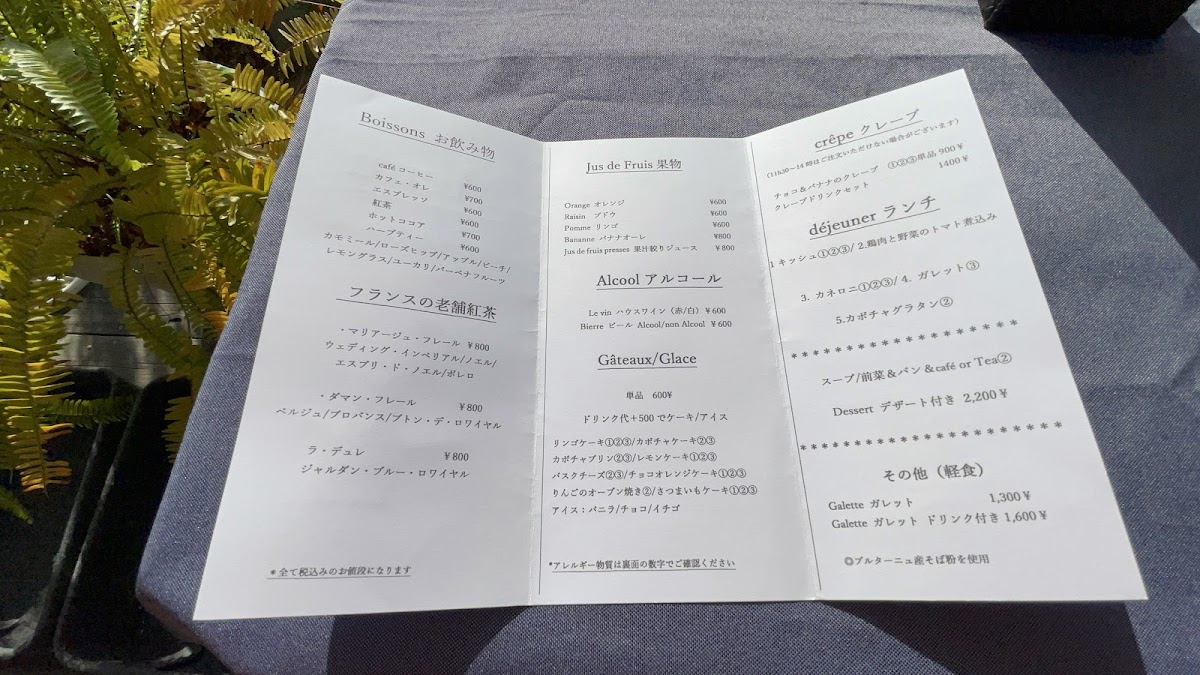 Boissons お飲み物
café コーヒー ¥600
カフェ・オレ ¥700
エスプレッソ ¥600
紅茶 ¥600
ホットココア ¥700
ハーブティー ¥600
カモミール/ローズヒップ/アップル/ピーチ/
レモングラス/ユーカリ/バーベナフルーツ
フランスの老舗紅茶
・マリアージュ・フレール ¥800
ウェディング・インペリアル/ノエル/
エスプリ・ド・ノエル/ボレロ
・ダマン・フレール ¥800
ベルジュ/プロバンス/ブトン・デ・ロワイヤル
ラ・デュレ ¥800
ジャルダン・ブルー・ロワイヤル
*全て税込みのお値段になります
Jus de Fruis 果物
Orange オレンジ ¥600
Raisin ブドウ ¥600
Pomme リンゴ ¥600
Bananne バナナオーレ ¥800
Jus de fruis presses 果汁絞りジュース ¥800
Alcool アルコール
Le vin ハウスワイン（赤/白）¥600
Bierre ビール Alcool/non Alcool ¥600
Gâteaux/Glace
単品 600¥
ドリンク代+500でケーキ/アイス
リンゴケーキ①②③/カボチャケーキ②③
カボチャプリン②③/レモンケーキ①②③
バスクチーズ②③/チョコオレンジケーキ①②③
りんごのオーブン焼き②/さつまいもケーキ①②③
アイス：バニラ/チョコ/イチゴ
*アレルギー物質は裏面の数字でご確認ください
crêpe クレープ
（11h30～14時はご注文いただけない場合がございます）
チョコ＆バナナのクレープ ①②③単品 900¥
クレープドリンクセット 1400¥
déjeuner ランチ
1 キッシュ①②③/ 2.鶏肉と野菜のトマト煮込み
3. カネロニ①②③/ 4. ガレット③
5.カボチャグラタン②
* * * * * * * * * * * * * * * * * * * *
スープ/前菜＆パン＆café or Tea②
Dessert デザート付き 2,200¥
* * * * * * * * * * * * * * * * * * * * * *
その他（軽食）
Galette ガレット 1,300¥
Galette ガレット ドリンク付き 1,600¥
◎ブルターニュ産そば粉を使用